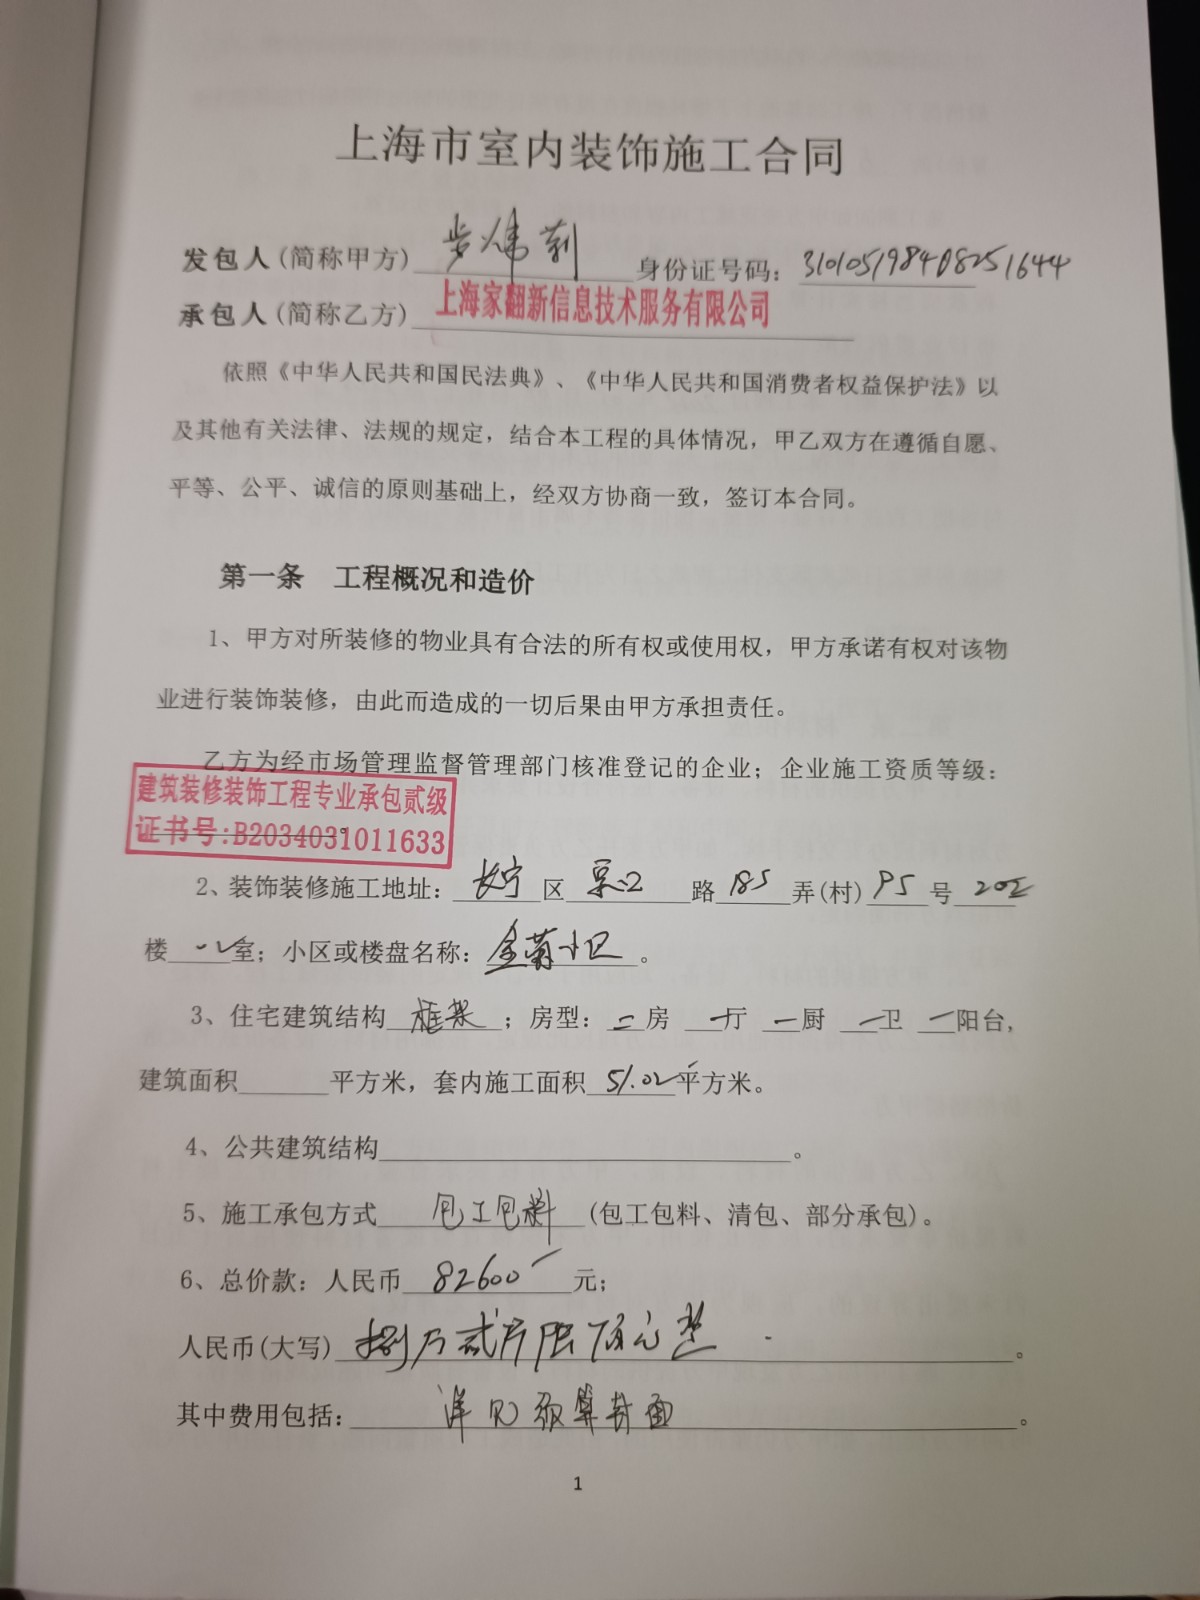 上海市室内装饰施工合同
发包人(简称甲方) 步 身份证号码：310105198408251644
承包人(简称乙方) 上海家翻新信息技术服务有限公司
依照《中华人民共和国民法典》、《中华人民共和国消费者权益保护法》以
及其他有关法律、法规的规定，结合本工程的具体情况，甲乙双方在遵循自愿、
平等、公平、诚信的原则基础上，经双方协商一致，签订本合同。
第一条 工程概况和造价
1、甲方对所装修的物业具有合法的所有权或使用权，甲方承诺有权对该物
业进行装饰装修，由此而造成的一切后果由甲方承担责任。
乙方为经市场管理监督管理部门核准登记的企业；企业施工资质等级：
建筑装修装饰工程专业承包贰级
证书号:B2034031011633
。
2、装饰装修施工地址：长宁区 路185弄(村) 号202
楼 室；小区或楼盘名称：金 小区。
3、住宅建筑结构框架；房型：二房 一厅 一厨 一卫 一阳台,
建筑面积 平方米，套内施工面积51.02平方米。
4、公共建筑结构 。
5、施工承包方式 包工包料 (包工包料、清包、部分承包)。
6、总价款：人民币 82600 元；
人民币(大写) 捌万贰仟陆佰元整 。
其中费用包括： 详见预算封面 。
1